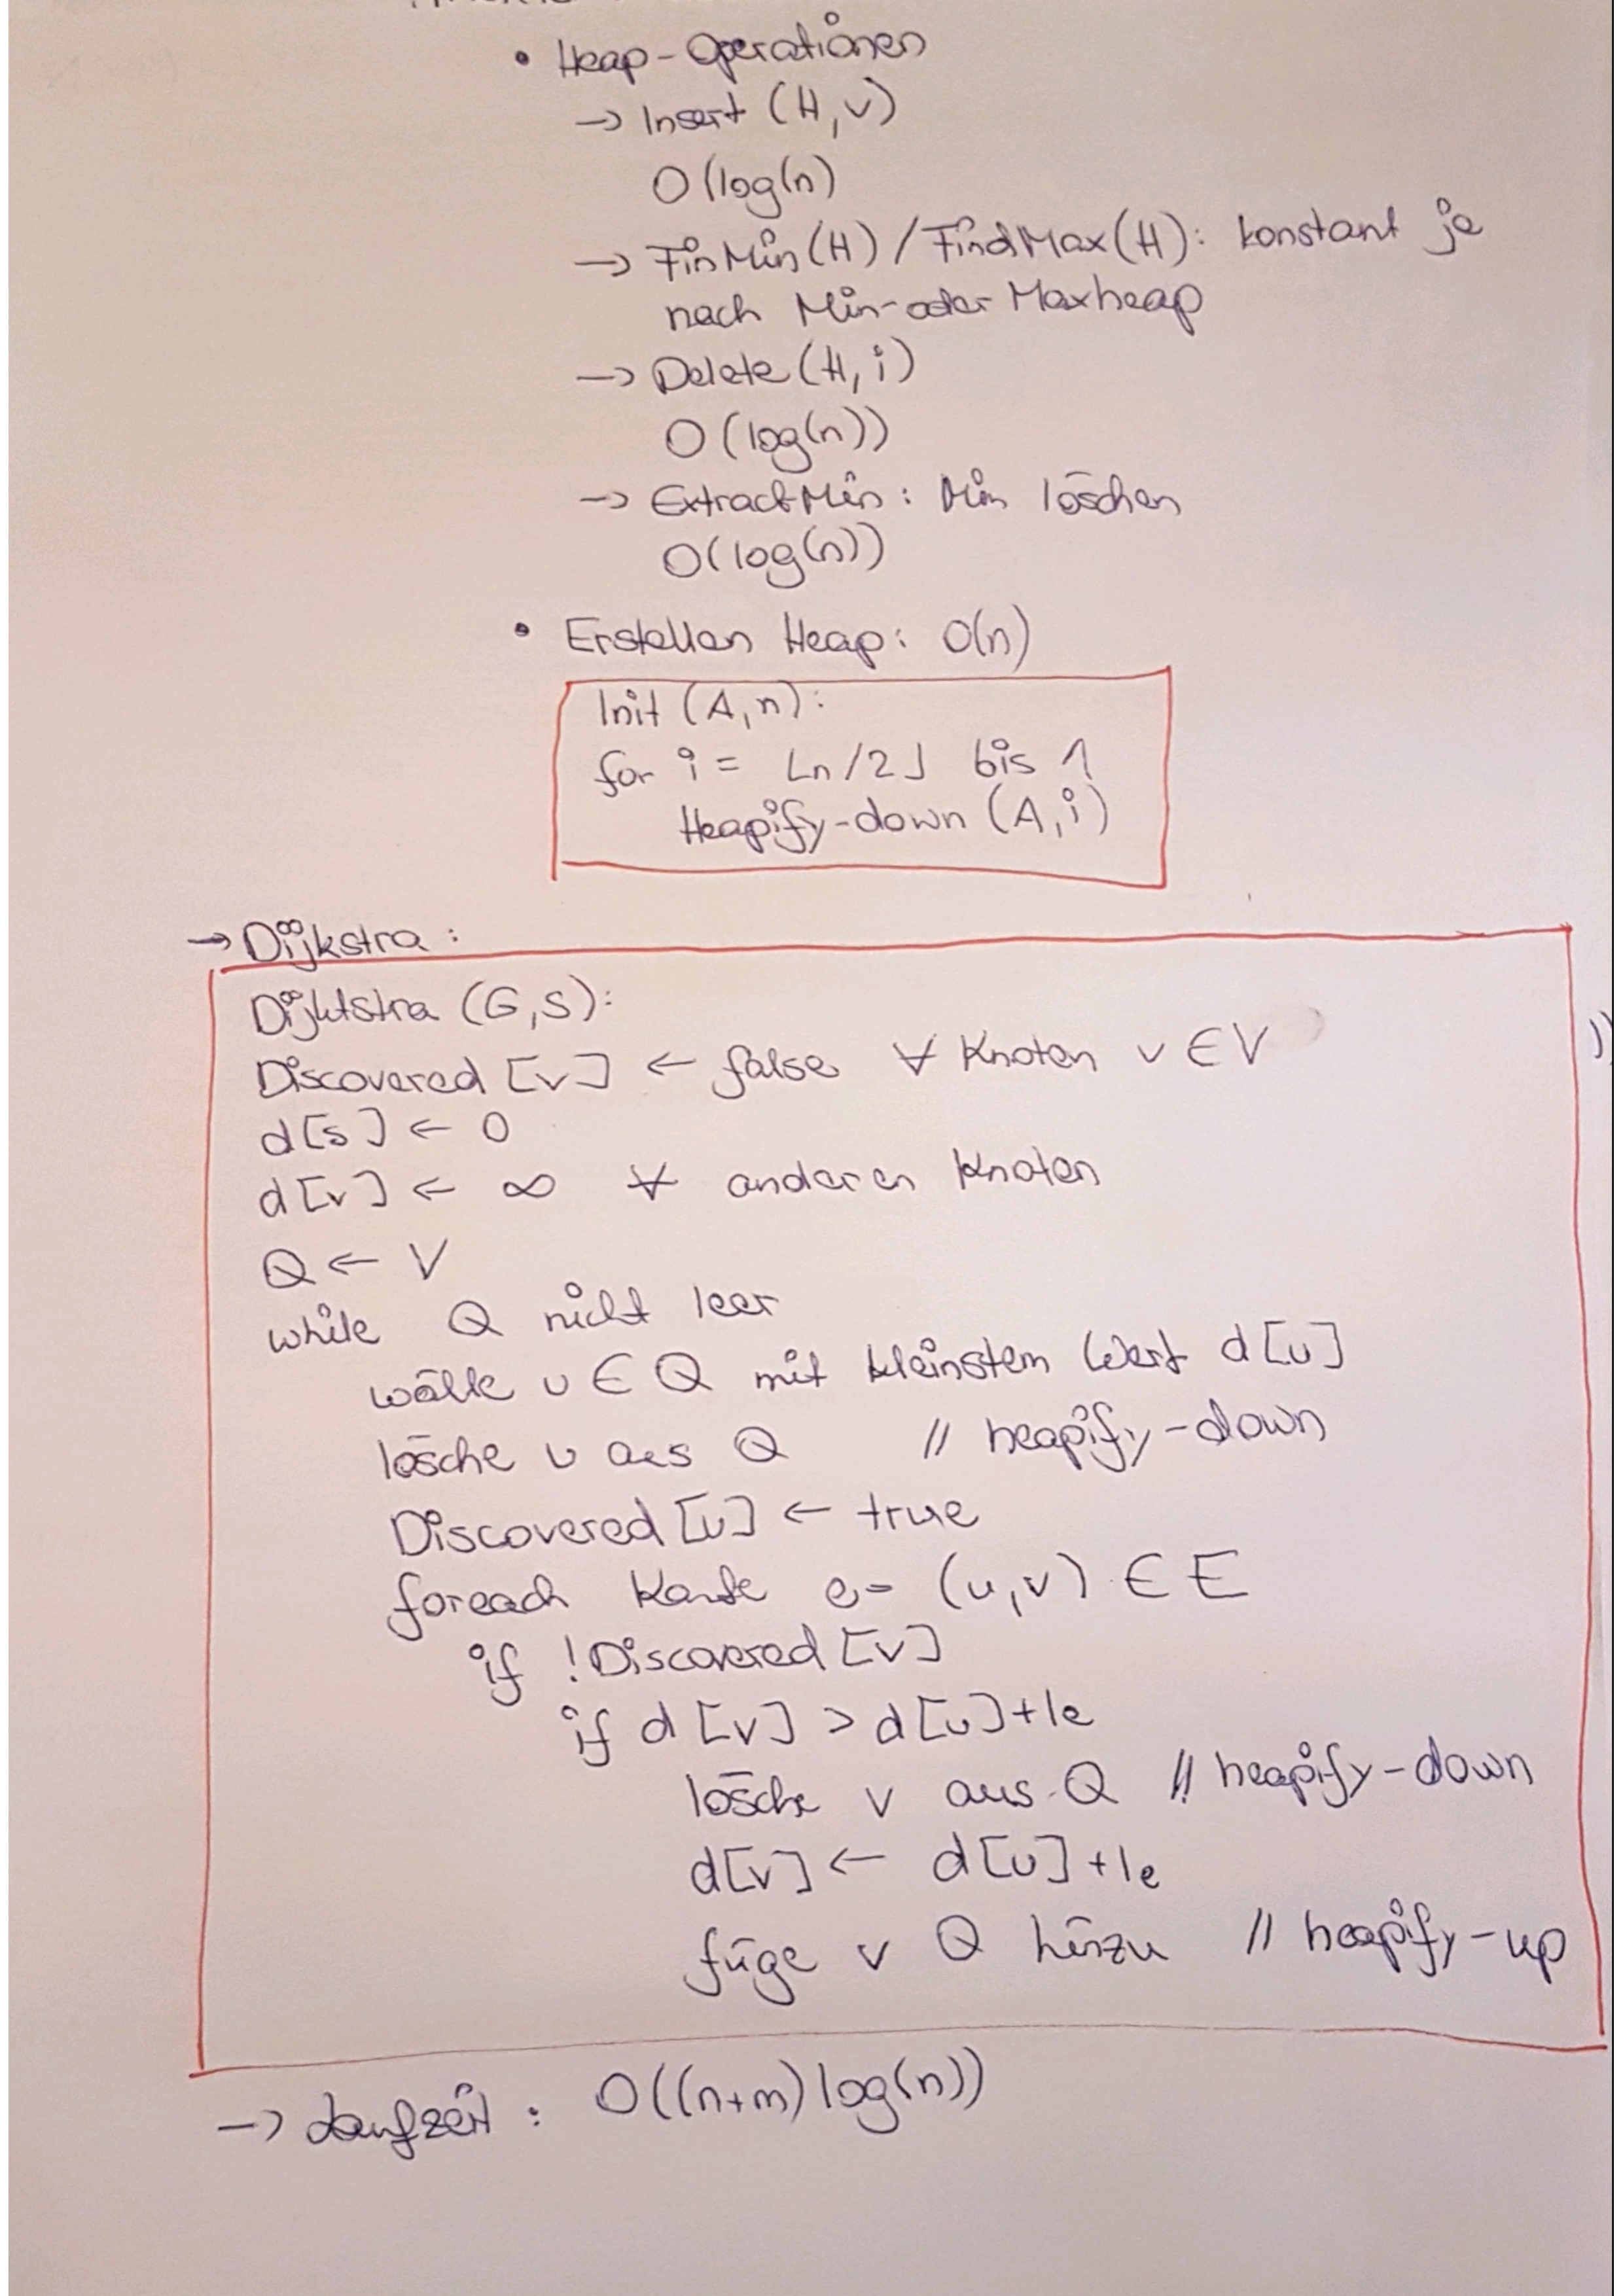 • Heap-Operationen
→ Insert (H,v)
O(log(n)
→ FinMin(H) / FindMax(H): konstant je
nach Min- oder Maxheap
→ Delete(H,i)
O(log(n))
→ ExtractMin: Min löschen
O(log(n))
• Erstellen Heap: O(n)
Init (A,n):
for i = ⌊n/2⌋ bis 1
Heapify-down (A,i)
→ Dijkstra:
Dijktstra (G,s):
Discovered [v] ← false ∀ Knoten v ∈ V
d[s] ← 0
d[v] ← ∞ ∀ anderen Knoten
Q ← V
while Q nicht leer
wähle u ∈ Q mit kleinstem Wert d[u]
lösche u aus Q // heapify-down
Discovered[u] ← true
foreach Kante e = (u,v) ∈ E
if !Discovered[v]
if d[v] > d[u]+le
lösche v aus Q // heapify-down
d[v] ← d[u]+le
füge v Q hinzu // heapify-up
→ Laufzeit: O((n+m)log(n))